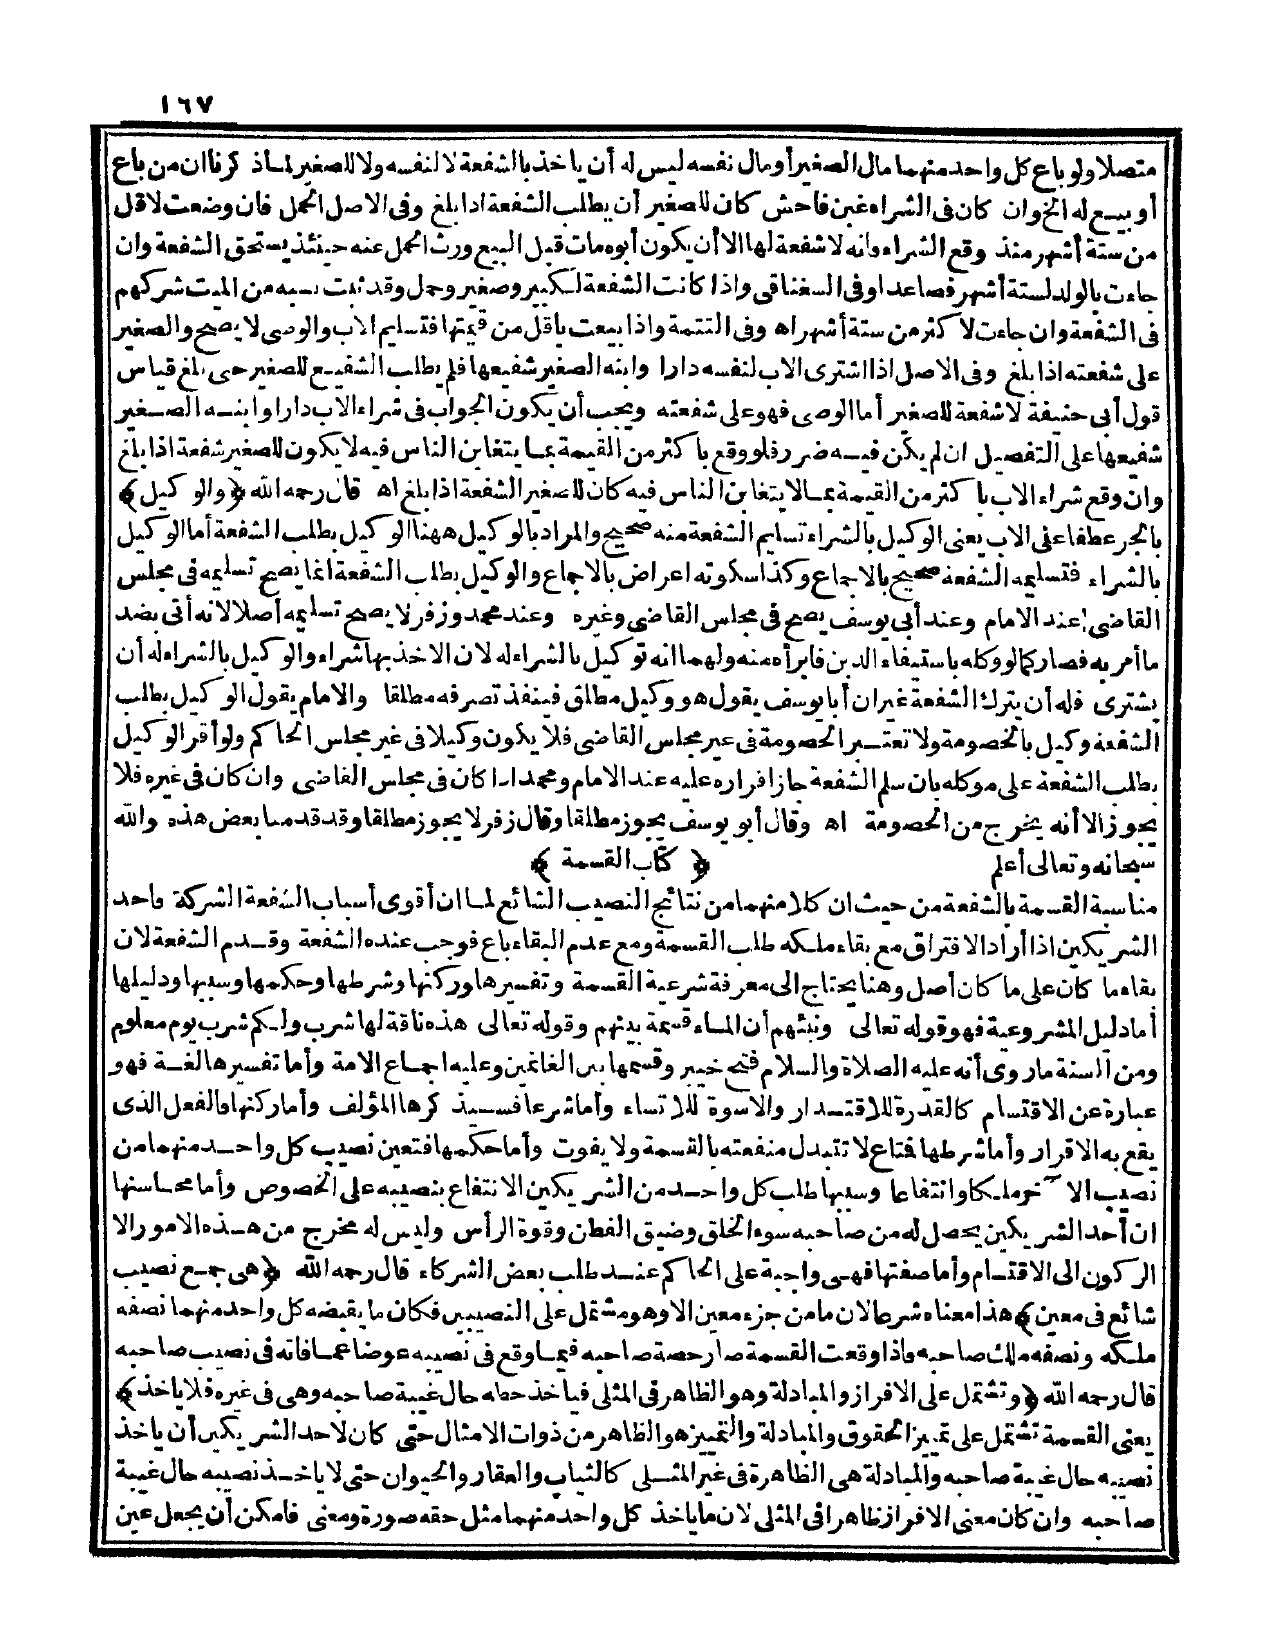 ١٦٧
متصلا ولو باع كل واحد منهما مال الصغير أو مال نفسه ليس له أن ياخذ بالشفعة لا لنفسه ولا للصغير لما ذكرنا ان من باع
أو بيع له الخ وان كان فى الشراء غبن فاحش كان للصغير أن يطلب الشفعة اذا بلغ وفى الاصل الحمل فان وضعت لاقل
من ستة أشهر منذ وقع الشراء فانه لا شفعة لها الا أن يكون أبوه مات قبل البيع ورث الحمل عنه حينئذ يستحق الشفعة وان
جاءت بالولد لستة أشهر فصاعدا وفى السغناقى واذا كانت الشفعة لكبير وصغير وحمل وقد ثبت نسبه من الميت شركهم
فى الشفعة وان جاءت لاكثر من ستة أشهر اه وفى التتمة واذا بيعت باقل من قيمتها فتسليم الاب والوصى لا يصح والصغير
على شفعته اذا بلغ وفى الاصل اذا اشترى الاب لنفسه دارا وابنه الصغير شفيعها فلم يطلب الشفيع للصغير حتى بلغ قياس
قول أبى حنيفة لا شفعة للصغير أما الوصى فهو على شفعته ويجب أن يكون الجواب فى شراء الاب دارا وابنه الصغير
شفيعها على التفصيل ان لم يكن فيه ضرر فلو وقع باكثر من القيمة بما يتغابن الناس فيه لا يكون للصغير شفعة اذا بلغ
وان وقع شراء الاب باكثر من القيمة بما لا يتغابن الناس فيه كان للصغير الشفعة اذا بلغ اه قال رحمه الله ﴿والوكيل﴾
بالجر عطفا على الاب يعنى الوكيل بالشراء تسليم الشفعة منه صحيح والمراد بالوكيل ههنا الوكيل بطلب الشفعة أما الوكيل
بالشراء فتسليمه الشفعة صحيح بالاجماع وكذا سكوته اعراض بالاجماع والوكيل بطلب الشفعة انما يصح تسليمه فى مجلس
القاضى عند الامام وعند أبى يوسف يصح فى مجلس القاضى وغيره وعند محمد وزفر لا يصح تسليمه أصلا لانه أتى بضد
ما أمر به فصار كما لو وكله باستيفاء الدين فابرأه منه ولهما انه توكيل بالشراء له لان الاخذ بها شراء والوكيل بالشراء له أن
يشترى فله أن يترك الشفعة غير ان أبا يوسف يقول هو وكيل مطلق فينفذ تصرفه مطلقا والامام يقول الوكيل بطلب
الشفعة وكيل بالخصومة ولا تعتبر الخصومة فى غير مجلس القاضى فلا يكون وكيلا فى غير مجلس الحاكم ولو أقر الوكيل
بطلب الشفعة على موكله بان سلم الشفعة جاز اقراره عليه عند الامام ومحمد اذا كان فى مجلس القاضى وان كان فى غيره فلا
يجوز الا أنه يخرج من الخصومة اه وقال أبو يوسف يجوز مطلقا وقال زفر لا يجوز مطلقا وقد قدمنا بعض هذه والله
سبحانه وتعالى أعلم ﴿ كتاب القسمة ﴾
مناسبة القسمة بالشفعة من حيث ان كلا منهما من نتائج النصيب الشائع لما ان أقوى أسباب الشفعة الشركة فاحد
الشريكين اذا أراد الافتراق مع بقاء ملكه طلب القسمة ومع عدم البقاء باع فوجب عنده الشفعة وقدم الشفعة لان
بقاء ما كان على ما كان أصل وهنا يحتاج الى معرفة شرعية القسمة وتفسيرها وركنها وشرطها وحكمها وسببها ودليلها
أما دليل المشروعية فهو قوله تعالى ونبئهم أن الماء قسمة بينهم وقوله تعالى هذه ناقة لها شرب ولكم شرب يوم معلوم
ومن السنة ما روى أنه عليه الصلاة والسلام فتح خيبر وقسمها بين الغانمين وعليه اجماع الامة وأما تفسيرها لغة فهو
عبارة عن الاقتسام كالقدرة للاقتدار والاسوة للاتساء وأما شرعا فسيذكرها المؤلف وأما ركنها فالفعل الذى
يقع به الاقرار وأما شرطها فتاع لا تتبدل منفعته بالقسمة ولا يفوت وأما حكمها فتعين نصيب كل واحد منهما من
نصيب الآخر ملكا وانتفاعا وسببها طلب كل واحد من الشريكين الانتفاع بنصيبه على الخصوص وأما محاسنها
ان أحد الشريكين يحصل له من صاحبه سوء الخلق وضيق الفطن وقوة الرأس وليس له مخرج من هذه الامور الا
الركون الى الاقتسام وأما صفتها فهى واجبة على الحاكم عند طلب بعض الشركاء قال رحمه الله ﴿هى جمع نصيب
شائع فى معين﴾ هذا معناه شرطا لان ما من جزء معين الا وهو مشتمل على النصيبين فكان ما يقبضه كل واحد منهما نصفه
ملكه ونصفه ملك صاحبه فاذا وقعت القسمة صار حصة صاحبه فيما وقع فى نصيبه عوضا عما فاته فى نصيب صاحبه
قال رحمه الله ﴿وتشتمل على الافراز والمبادلة وهو الظاهر فى المثلى فياخذ حظه حال غيبة صاحبه وهى فى غيره فلا ياخذ﴾
يعنى القسمة تشتمل على تمييز الحقوق والمبادلة والتمييز هو الظاهر من ذوات الامثال حتى كان لاحد الشريكين أن ياخذ
نصيبه حال غيبة صاحبه والمبادلة هى الظاهرة فى غير المثلى كالثياب والعقار والحيوان حتى لا ياخذ نصيبه حال غيبة
صاحبه وان كان معنى الافراز ظاهرا فى المثلى لان ما ياخذ كل واحد منهما مثل حقه صورة ومعنى فامكن أن يجعل عين